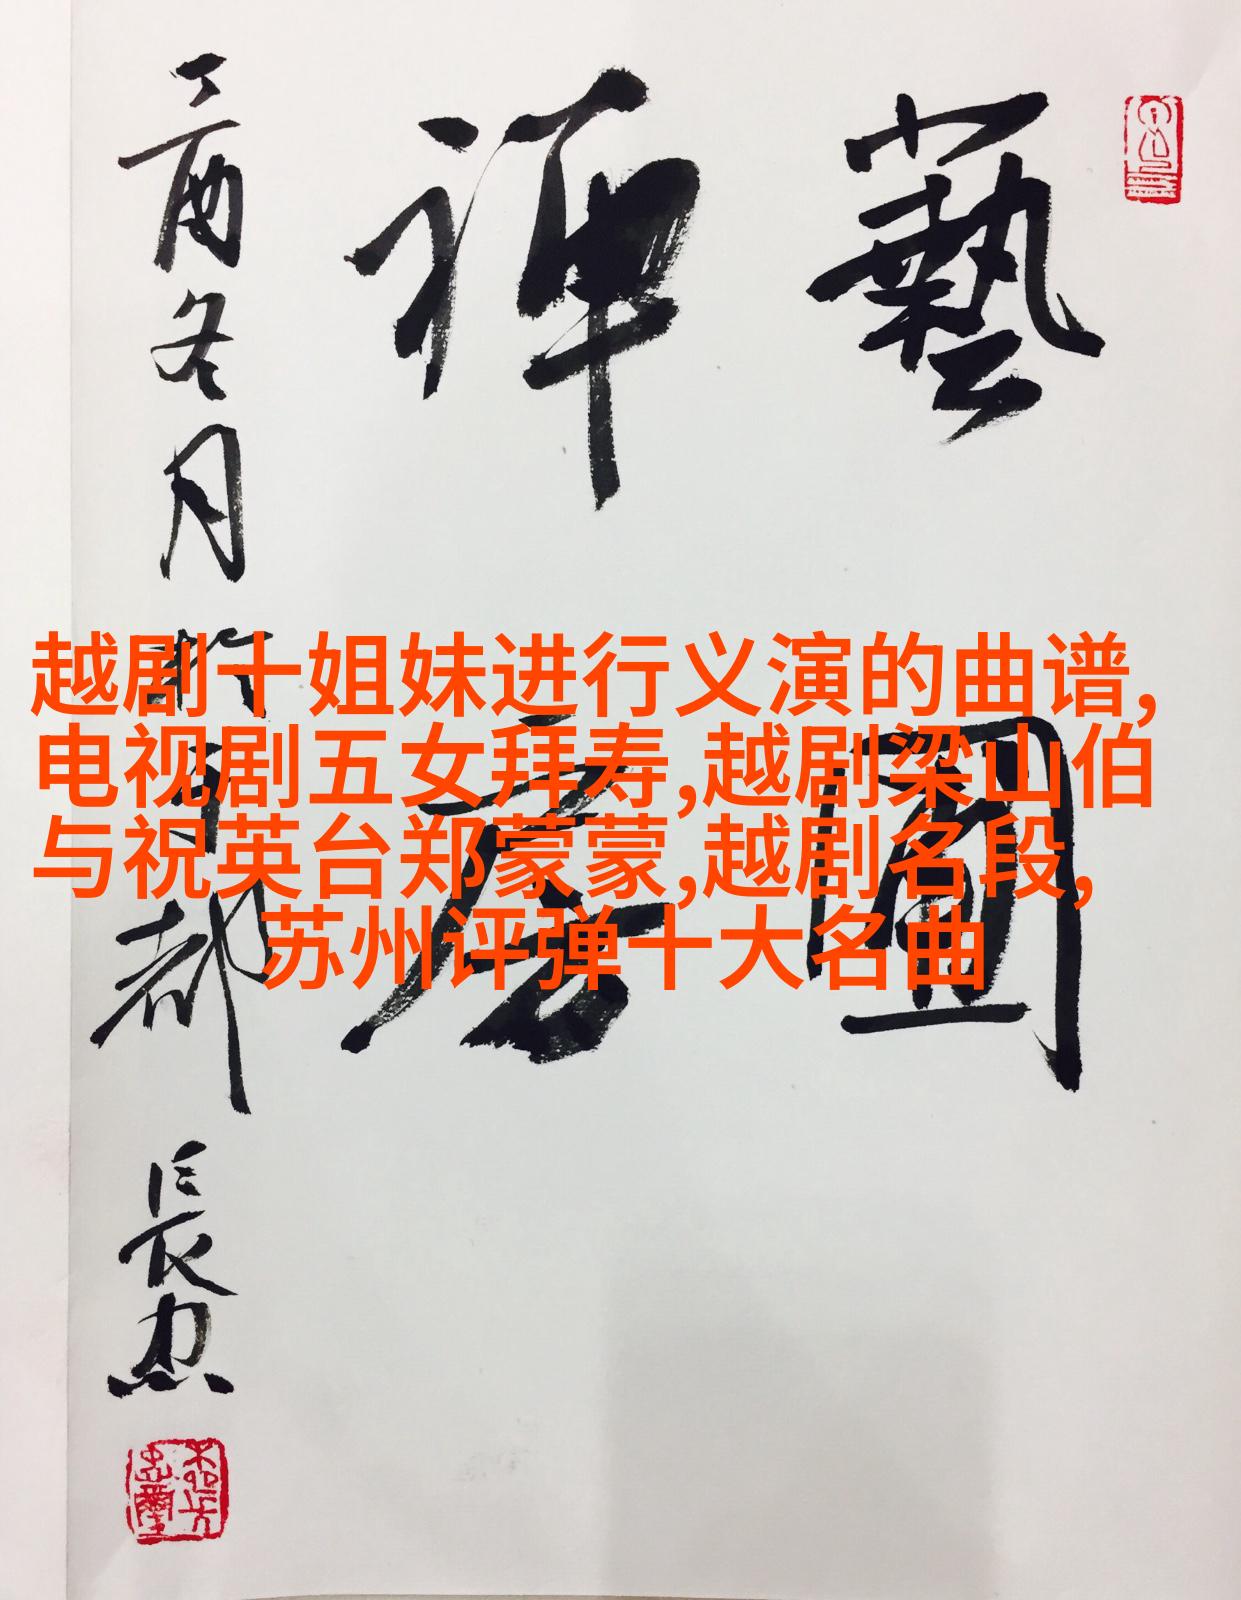 藝圃
禅房
丁酉冬月於
首都
長忠
越剧十姐妹进行义演的曲谱,
电视剧五女拜寿,越剧梁山伯
与祝英台郑蒙蒙,越剧名段,
苏州评弹十大名曲